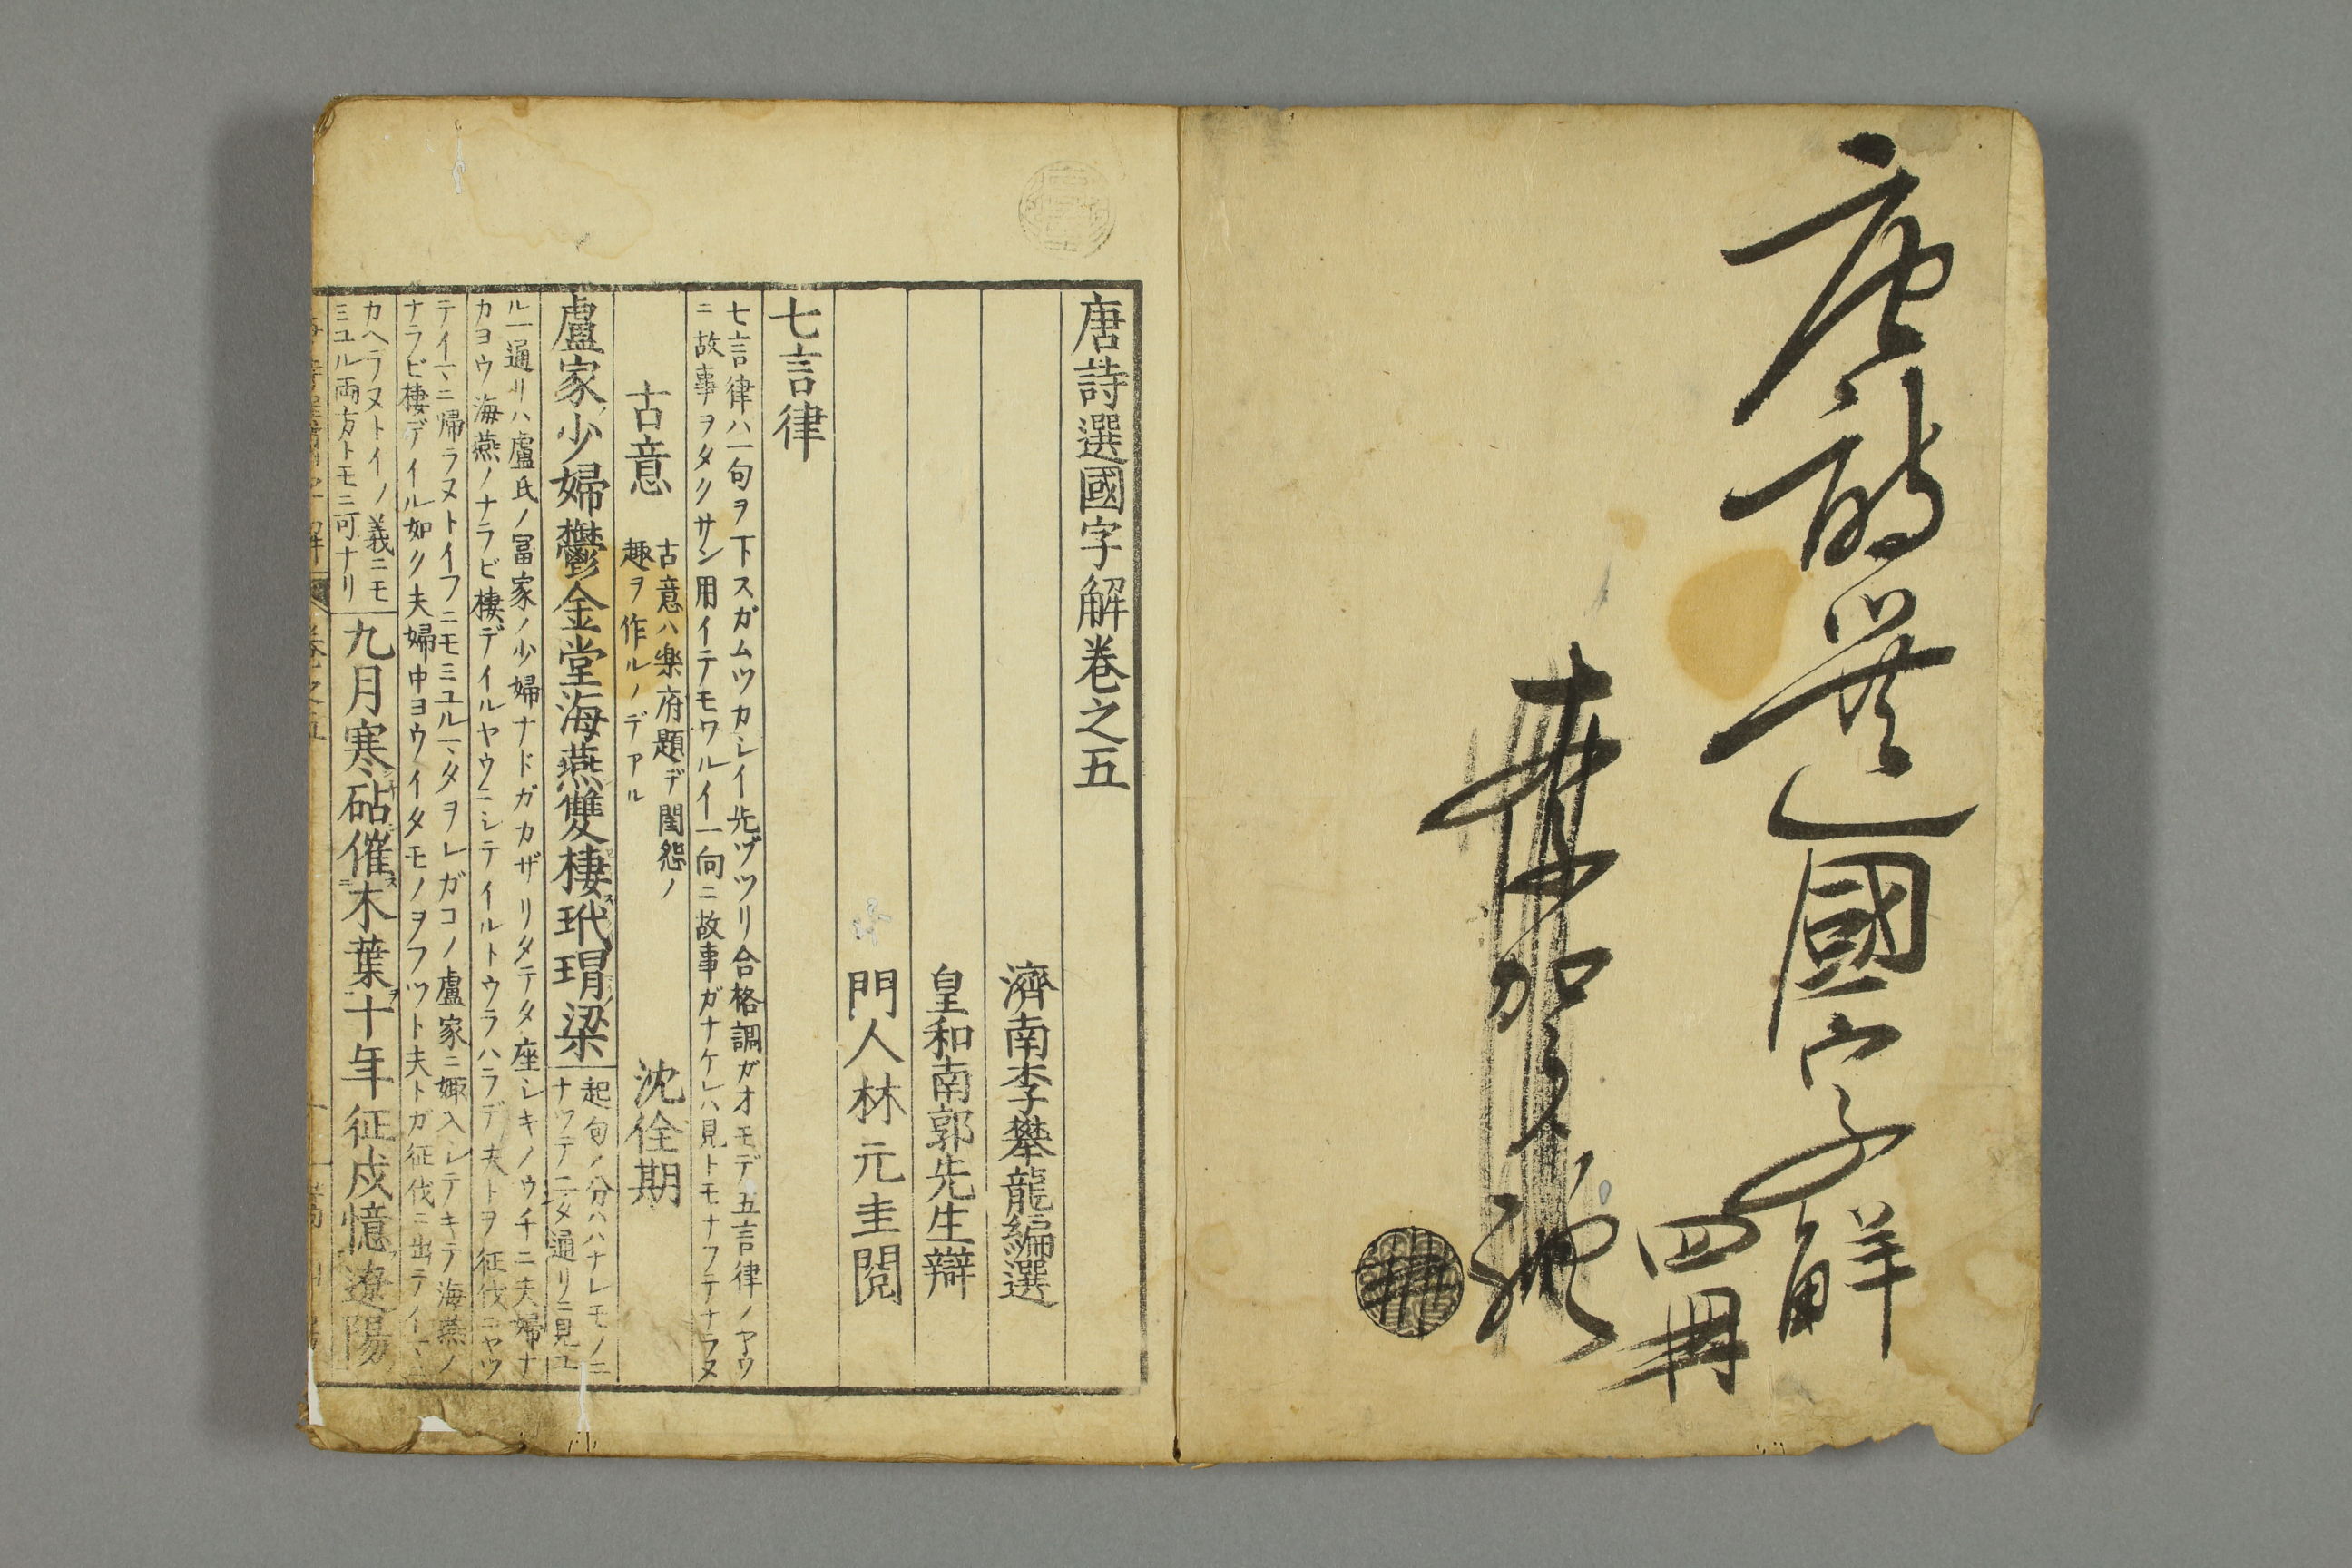 唐詩選國字解
四冊
唐詩選國字解卷之五
濟南李攀龍編選
皇和南郭先生辯
門人林元圭閲
七言律
七言律ハ一句ヲ下スガムツカシイ先ヅツリ合格調ガオモデ五言律ノヤウ
ニ故事ヲタクサン用イテモワルイ一向ニ故事ガナケレハ見トモナフテナラヌ
古意
古意ハ樂府題デ閨怨ノ
趣ヲ作ルノデアル
沈佺期
盧家少婦鬱金堂海燕雙棲玳瑁梁
起句ノ分ハハナレモノニ
ナツテ二タ通リニ見ユ
ル一通リハ盧氏ノ冨家ノ少婦ナドガカザリタテタ座シキノウチニ夫婦ナ
カヨウ海燕ノナラビ棲デイルヤウニシテイルトウラハラデ夫トヲ征伐ニヤツ
テイ一ニ帰ラヌトイフニモミユル一タヲレガコノ盧家ニ娵入レテキテ海燕ノ
ナラビ棲デイル如ク夫婦中ヨウイタモノヲフツト夫トガ征伐ニ出テイ
カヘラヌトイノ義ニモ
ミユル両方トモニ可ナリ
九月寒砧催木葉十年征戍憶遼陽